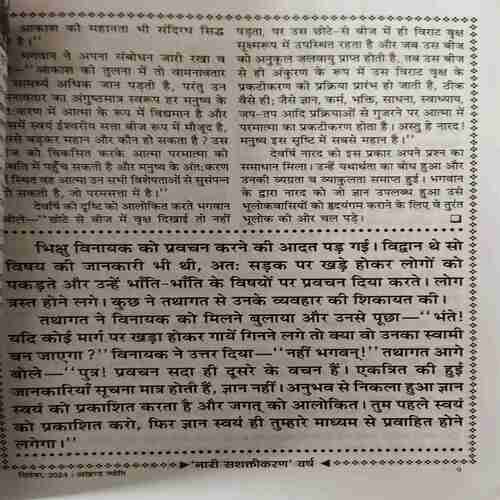 आकाश की महानता भी संदिग्ध सिद्ध
है।''
भगवान ने अपना संबोधन जारी रखा व
—''आकाश की तुलना में तो वामनावतार
सामर्थ्य अधिक जान पड़ती है, परंतु उन
नावतार का अंगुष्ठमात्र स्वरूप हर मनुष्य के
:करण में आत्मा के रूप में विद्यमान है और
समें स्वयं ईश्वरीय सत्ता बीज रूप में मौजूद है,
ससे बढ़कर महान और कौन हो सकता है? उस
को विकसित करके आत्मा परमात्मा की
थति में पहुँच सकती है और मनुष्य के अंत:करण
स्थित वह आत्मा उन सभी विशेषताओं से सुसंपन्न
सकती है, जो परमसत्ता में है।''
देवर्षि की दृष्टि को आलोकित करते भगवान
बोले—''छोटे से बीज में वृक्ष दिखाई तो नहीं
पड़ता, पर उस छोटे-से बीज में ही विराट वृक्ष
सूक्ष्मरूप में उपस्थित रहता है और जब उस बीज
को अनुकूल जलवायु प्राप्त होती है, तब उस बीज
से ही अंकुरण के रूप में उस विराट वृक्ष के
प्रकटीकरण की प्रक्रिया प्रारंभ हो जाती है, ठीक
वैसे ही; जैसे ज्ञान, कर्म, भक्ति, साधना, स्वाध्याय,
जप-तप आदि प्रक्रियाओं से गुजरने पर आत्मा में
परमात्मा का प्रकटीकरण होता है। अस्तु हे नारद!
मनुष्य इस सृष्टि में सबसे महान है।''
देवर्षि नारद को इस प्रकार अपने प्रश्न का
समाधान मिला। उन्हें यथार्थता का बोध हुआ और
उनकी व्यग्रता व व्याकुलता समाप्त हुई। भगवान
के द्वारा नारद को जो ज्ञान उपलब्ध हुआ उसे
भूलोकवासियों को हृदयंगम कराने के लिए वे तुरंत
भूलोक की ओर चल पड़े।
भिक्षु विनायक को प्रवचन करने की आदत पड़ गई। विद्वान थे सो
विषय की जानकारी भी थी, अत: सड़क पर खड़े होकर लोगों को
पकड़ते और उन्हें भाँति-भाँति के विषयों पर प्रवचन दिया करते। लोग
त्रस्त होने लगे। कुछ ने तथागत से उनके व्यवहार की शिकायत की।
तथागत ने विनायक को मिलने बुलाया और उनसे पूछा—''भंते!
यदि कोई मार्ग पर खड़ा होकर गायें गिनने लगे तो क्या वो उनका स्वामी
बन जाएगा?'' विनायक ने उत्तर दिया—''नहीं भगवन्!'' तथागत आगे
बोले—''पुत्र! प्रवचन सदा ही दूसरे के वचन हैं। एकत्रित की हुई
जानकारियाँ सूचना मात्र होती हैं, ज्ञान नहीं। अनुभव से निकला हुआ ज्ञान
स्वयं को प्रकाशित करता है और जगत् को आलोकित। तुम पहले स्वयं
को प्रकाशित करो, फिर ज्ञान स्वयं ही तुम्हारे माध्यम से प्रवाहित होने
लगेगा।''
'नारी सशक्तीकरण' वर्ष
दिसंबर, 2024 : अखण्ड ज्योति